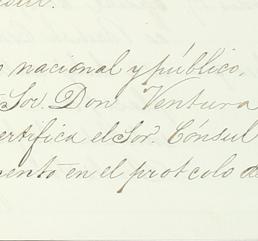 o nacional y público,
Sor. Don Ventura
ertifica el Sor. Cónsul
mento en el protcolo de